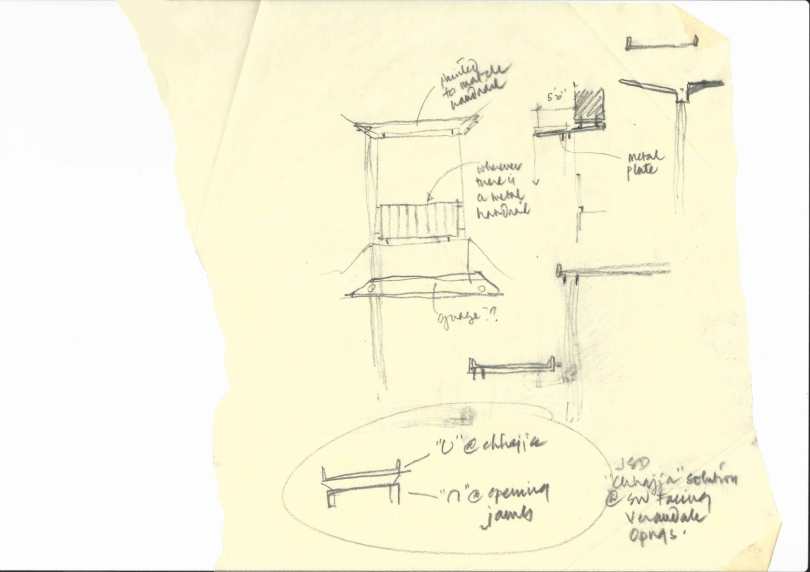 painted
to match
handrail
5'0"
metal
plate
wherever
there is
a metal
handrail
"U" @ chhajja
"∩" @ opening
jambs
JSD
"Chhajja" solution
@ SW Facing
Verandah
Opngs.